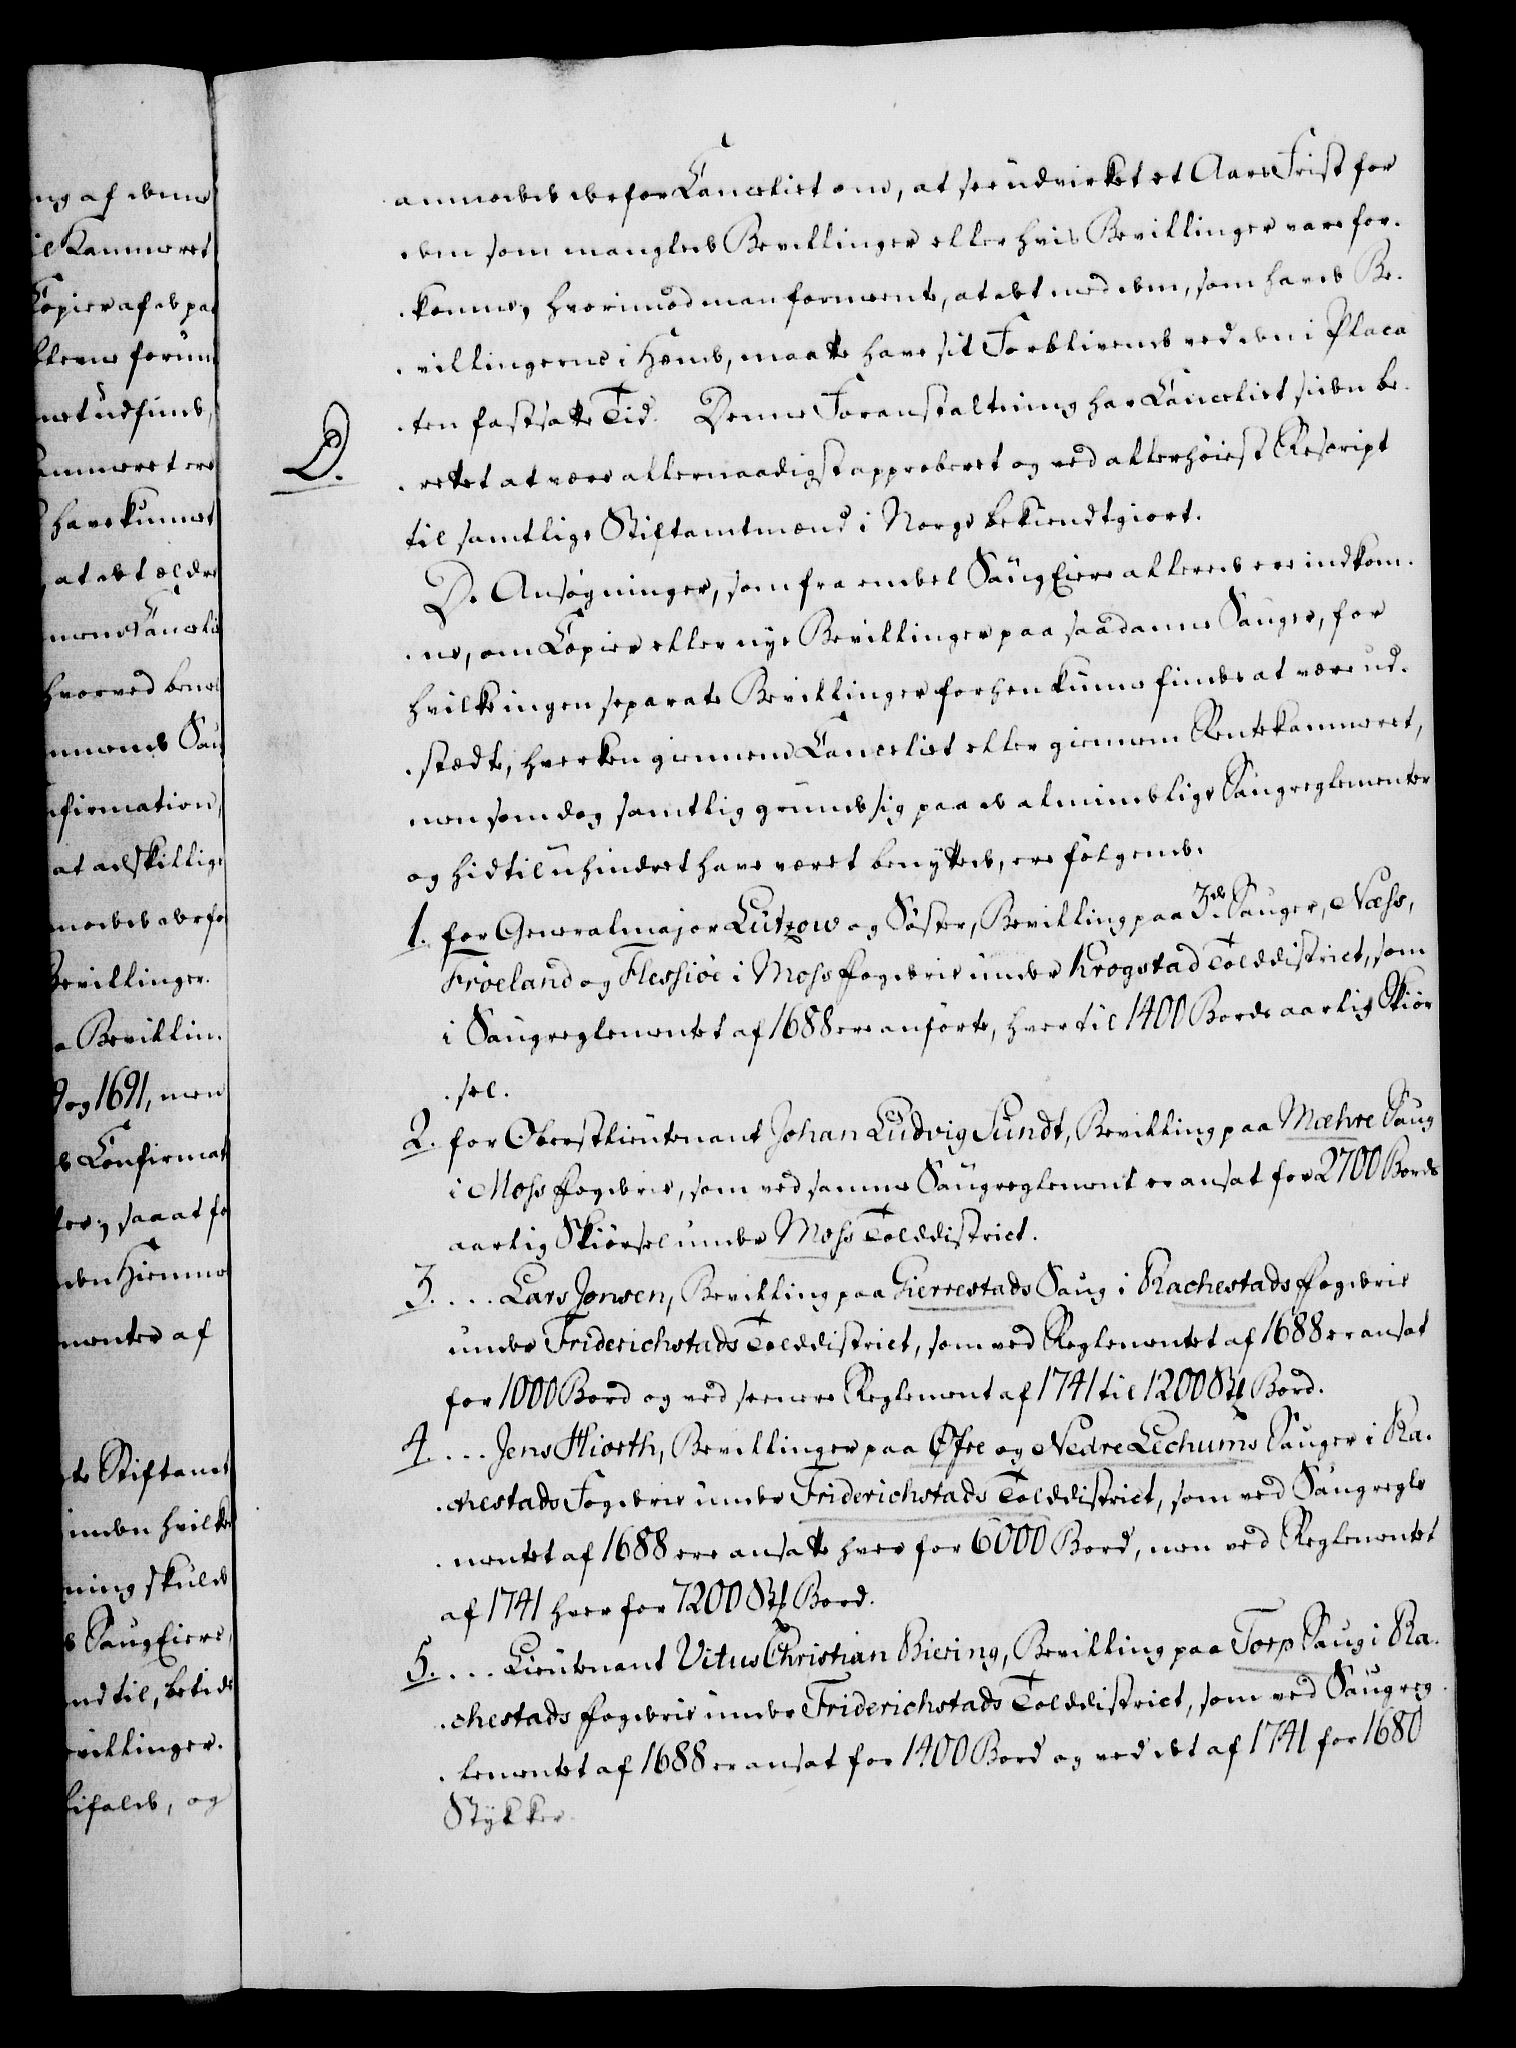 ng af denne
il Kammeret
Copier af de paa
blevne forun
net udfinde,
ammeret ere
have kunnet
, at det ældre
mens Cancelie
hvorved bem
mmende Sau
nfirmation,
at adskillige
modede derfo
Bevillinger.
a Bevillin.
9 og 1691, men
de Confirmat
ler; saa at fo
den Hiemme
menter af
te Stiftamt
inden hvilke
ning skulde
de SaugEiere,
nd til, betids
evillinger.
tilfalde, og
anmodede derfor Canceliet om, at see udvirket et Aars Frist for
. dem som manglede Bevillinger eller hvis Bevillinger vare for.
. komne; hvorimod man formeente, at det med dem, som havde Be.
. villingerne i Hænde, maatte have sit Forblivende ved den i Placa
. ten fastsatte Tid. Denne Foranstaltning har Canceliet siden be.
D.
. rettet at være allernaadigst approberet og ved allerhöiest Rescript
til samtlige Stiftamtmænd i Norge bekiendtgiort.
De Ansögninger, som fra endeel SaugEiere allerede ere indkom.
. ne, om Copier eller nye Bevillinger paa saadanne Sauger, for
hvilke ingen separate Bevillinger forhen kunne findes at være ud.
. stædte, hverken giennem Canceliet eller giennem Rentekammeret,
men som dog samtlig grunde sig paa de almindelige Saugreglementer
og hidtil uhindret have været benyttede, ere fölgende.
1. for Generalmajor Lützow og Söster, Bevilling paa 3de Sauger, Næss,
Fröeland og Flessiöe i Moss Fogderie under Krogstad Tolddistrict, som
i Saugreglementet af 1688 ere anförte, hver til 1400 Bords aarlig Skiör
. sel.
2. for Oberstlieutenant Johan Ludvig Sundt, Bevilling paa Mæhre Saug
i Moss Fogderie, som ved samme Saugreglement er ansat for 2700 Bords
aarlig Skiörsel under Moss Tolddistrict.
3. ... Lars Jonsen, Bevilling paa Gierrestads Saug i Rachestads Fogderie
under Friderichstads Tolddistrict, som ved Reglementet af 1688 er ansat
for 1000 Bord og ved seenere Reglement af 1741 til 1200 Stk Bord.
4. ... Jens Hiorth, Bevillinger paa Öfre og Nedre Lechums Sauger i Ra.
. chestads Fogderie under Friderichstads Tolddistrict, som ved Saugregle
. mentet af 1688 ere ansatte hver for 6000 Bord, men ved Reglementet
af 1741 hver for 7200 Stk Bord.
5. ... Lieutenant Vitus Christian Biering, Bevilling paa Torp Saug i Ra.
. chestads Fogderie under Friderichstads Tolddistrict, som ved Saugreg.
. lementet af 1688 er ansat for 1400 Bord og ved det af 1741 for 1680
Stykker.